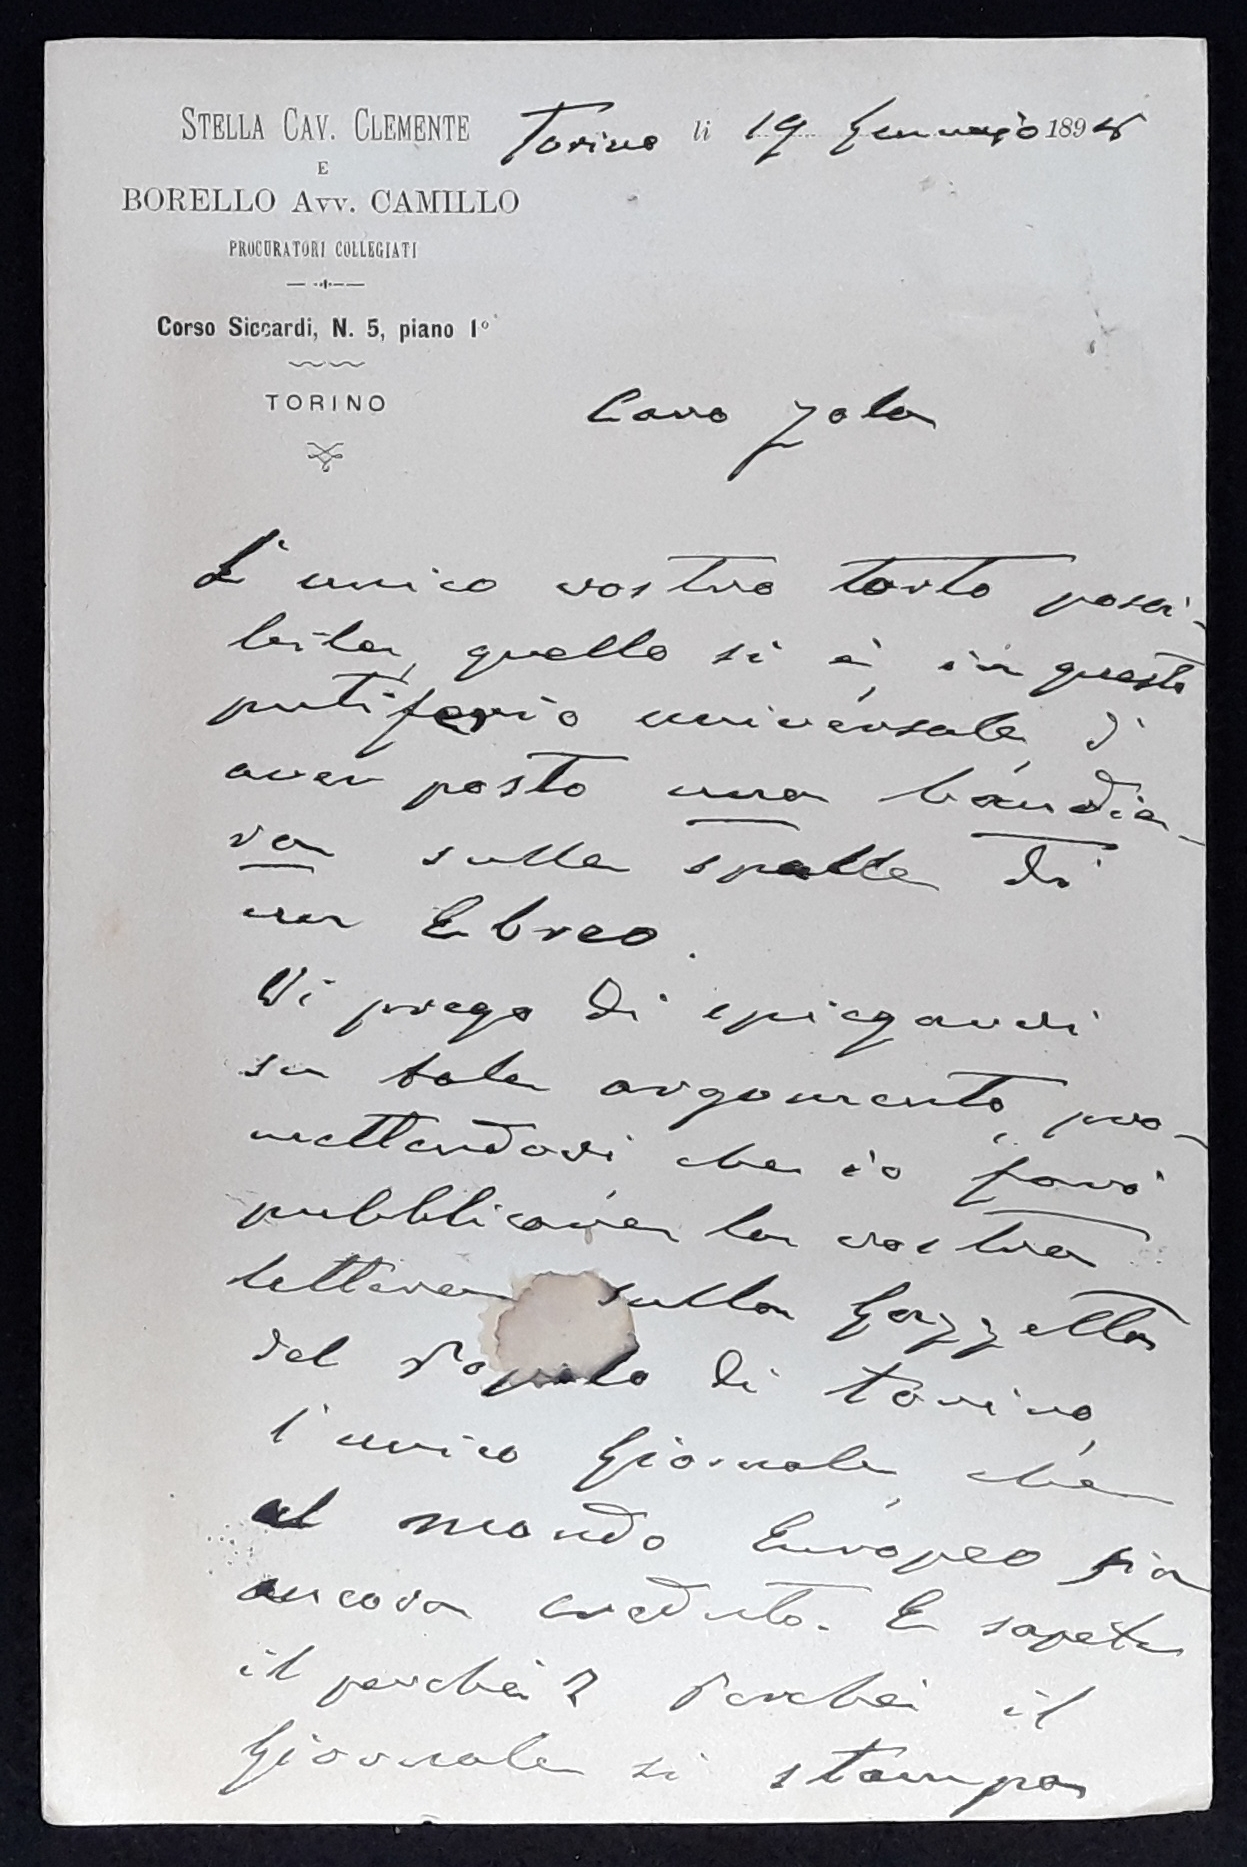 STELLA CAV. CLEMENTE
E
BORELLO AVV. CAMILLO
PROCURATORI COLLEGIATI
Corso Siccardi, N. 5, piano 1°
TORINO
Torino li 19 Gennajo 1898
Caro Zola
L'unico vostro torto possi-
bile, quello si è, in questo
putiferio universale, d'
aver posto una bandie-
ra sulle spalle di
un Ebreo.
Vi prego di spiegarvi
su tale argomento, pro-
mettendovi che io farò
pubblicare la vostra
lettera sulla Gazzetta
del Popolo di Torino,
l'unico Giornale, che
al mondo Europeo sia
ancora creduto. E sapete
il perchè? Perchè il
Giornale si stampa